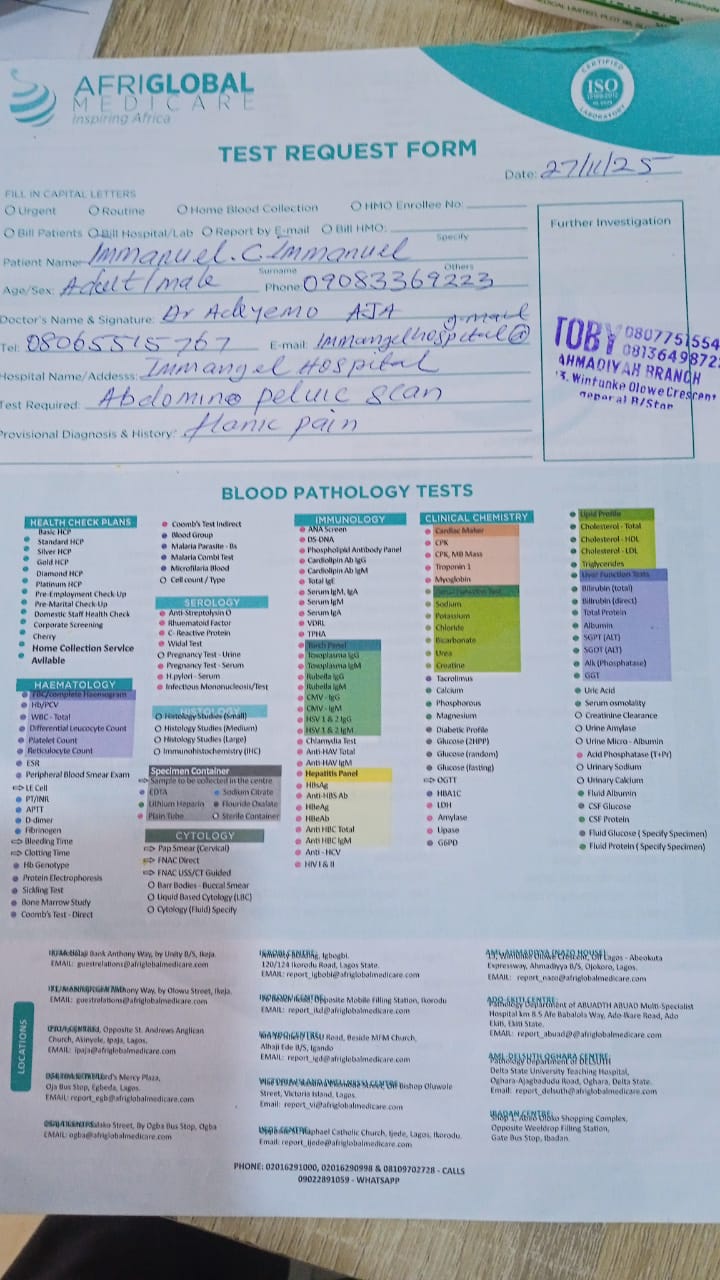 AFRIGLOBAL
MEDICARE
Inspiring Africa
CERTIFIED
ISO
LABORATORY
TEST REQUEST FORM
Date: 27/11/25
FILL IN CAPITAL LETTERS
Urgent Routine Home Blood Collection HMO Enrollee No:
Bill Patients Bill Hospital/Lab Report by E-mail Bill HMO:
Specify
Patient Name: Immanuel. C. Immanuel
Surname Others
Age/Sex: Adult/male Phone: 09083369223
Doctor's Name & Signature: Dr Adeyemo AJA
Tel: 08065515767 E-mail: Immangelhospital@ gmail
Hospital Name/Addesss: Immangel Hospital
Test Required: Abdomino pelvic scan
Provisional Diagnosis & History: flanic pain
Further Investigation
TOBY 0807751554
0813649872
AHMADIYAH BRANCH
Olowe Crescent
BLOOD PATHOLOGY TESTS
HEALTH CHECK PLANS
Basic HCP
Standard HCP
Silver HCP
Gold HCP
Diamond HCP
Platinum HCP
Pre-Employment Check-Up
Pre-Marital Check-Up
Domestic Staff Health Check
Corporate Screening
Cherry
Home Collection Service
Avilable
HAEMATOLOGY
FBC/complete Haemogram
Hb/PCV
WBC - Total
Differential Leucocyte Count
Platelet Count
Reticulocyte Count
ESR
Peripheral Blood Smear Exam
LE Cell
PT/INR
APTT
D-dimer
Fibrinogen
Bleeding Time
Clotting Time
Hb Genotype
Protein Electrophoresis
Sickling Test
Bone Marrow Study
Coomb's Test - Direct
Coomb's Test Indirect
Blood Group
Malaria Parasite - Bs
Malaria Combi Test
Microfilaria Blood
Cell count / Type
SEROLOGY
Anti-Streptolysin O
Rhuematoid Factor
C- Reactive Protein
Widal Test
Pregnancy Test - Urine
Pregnancy Test - Serum
H.pylori - Serum
Infectious Mononucleosis/Test
HISTOLOGY
Histology Studies (Small)
Histology Studies (Medium)
Histology Studies (Large)
Immunohistochemistry (IHC)
Specimen Container
Sample to be collected in the centre
EDTA Sodium Citrate
Lithium Heparin Flouride Oxalate
Plain Tube Sterile Container
CYTOLOGY
Pap Smear (Cervical)
FNAC Direct
FNAC USS/CT Guided
Barr Bodies - Buccal Smear
Liquid Based Cytology (LBC)
Cytology (Fluid) Specify
IMMUNOLOGY
ANA Screen
DS-DNA
Phospholipid Antibody Panel
Cardiolipin Ab IgG
Cardiolipin Ab IgM
Total IgE
Serum IgM, IgA
Serum IgM
Serum IgA
VDRL
TPHA
Torch Panel
Toxoplasma IgG
Toxoplasma IgM
Rubella IgG
Rubella IgM
CMV - IgG
CMV - IgM
HSV 1 & 2 IgG
HSV 1 & 2 IgM
Chlamydia Test
Anti-HAV Total
Anti-HAV IgM
Hepatitis Panel
HBsAg
Anti-HBS Ab
HBeAg
HBeAb
Anti HBC Total
Anti HBC IgM
Anti - HCV
HIV I & II
CLINICAL CHEMISTRY
Cardiac Maker
CPK
CPK, MB Mass
Troponin 1
Myoglobin
Renal Function Test
Sodium
Potassium
Chloride
Bicarbonate
Urea
Creatine
Tacrolimus
Calcium
Phosphorous
Magnesium
Diabetic Profile
Glucose (2HPP)
Glucose (random)
Glucose (fasting)
OGTT
HBA1C
LDH
Amylase
Lipase
G6PD
Lipid Profile
Cholesterol - Total
Cholesterol - HDL
Cholesterol - LDL
Triglycerides
Liver Function Tests
Bilirubin (total)
Bilirubin (direct)
Total Protein
Albumin
SGPT (ALT)
SGOT (ALT)
Alk (Phosphatase)
GGT
Uric Acid
Serum osmolality
Creatinine Clearance
Urine Amylase
Urine Micro - Albumin
Acid Phosphatase (T+Pr)
Urinary Sodium
Urinary Calcium
Fluid Albumin
CSF Glucose
CSF Protein
Fluid Glucose ( Specify Specimen)
Fluid Protein ( Specify Specimen)
LOCATIONS
Bank Anthony Way, by Unity B/S, Ikeja.
EMAIL: guestrelations@afriglobalmedicare.com
Anthony Way, by Olowu Street, Ikeja.
EMAIL: guestrelations@afriglobalmedicare.com
Opposite St. Andrews Anglican
Church, Akinyele, Ipaja, Lagos.
EMAIL: ipaja@afriglobalmedicare.com
Mercy Plaza,
Oja Bus Stop, Egbeda, Lagos.
EMAIL: report_egb@afriglobalmedicare.com
Street, By Ogba Bus Stop, Ogba
EMAIL: ogba@afriglobalmedicare.com
Igbogbi.
120/124 Ikorodu Road, Lagos State.
EMAIL: report_igbobi@afriglobalmedicare.com
Opposite Mobile Filling Station, Ikorodu
EMAIL: report_ikd@afriglobalmedicare.com
LASU Road, Beside MFM Church,
Alhaji Ede B/S, Igando
EMAIL: report_igd@afriglobalmedicare.com
Off Bishop Oluwole
Street, Victoria Island, Lagos.
Email: report_vi@afriglobalmedicare.com
Raphael Catholic Church, Ijede, Lagos, Ikorodu.
Email: report_ijede@afriglobalmedicare.com
AML AHMADIYYA (NAZO HOUSE)
Olowe Crescent, Off Lagos - Abeokuta
Expressway, Ahmadiyya B/S, Ojokoro, Lagos.
EMAIL: report_nazo@afriglobalmedicare.com
ADO-EKITI CENTRE:
Pathology Department of ABUADTH ABUAD Multi-Specialist
Hospital km 8.5 Afe Babalola Way, Ado-Ikare Road, Ado
Ekiti, Ekiti State.
EMAIL: report_abuad@@afriglobalmedicare.com
AML-DELSUTH OGHARA CENTRE:
Pathology Department of DELSUTH
Delta State University Teaching Hospital,
Oghara-Ajagbadudu Road, Oghara, Delta State.
Email: report_delsuth@afriglobalmedicare.com
IBADAN CENTRE:
Shop 1, Abeo Oloko Shopping Complex,
Opposite Weeldrop Filling Station,
Gate Bus Stop, Ibadan.
PHONE: 02016291000, 02016290998 & 08109702728 - CALLS
09022891059 - WHATSAPP